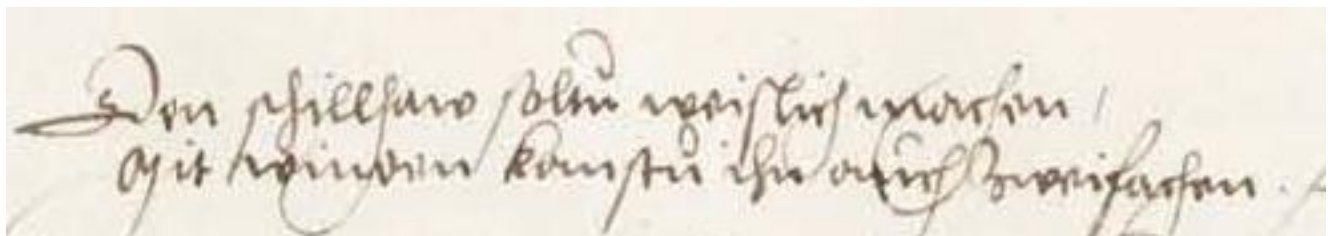 Den schillhaw soltu weislich machen /
Mit winden kanstu ihn auch zweifachen .